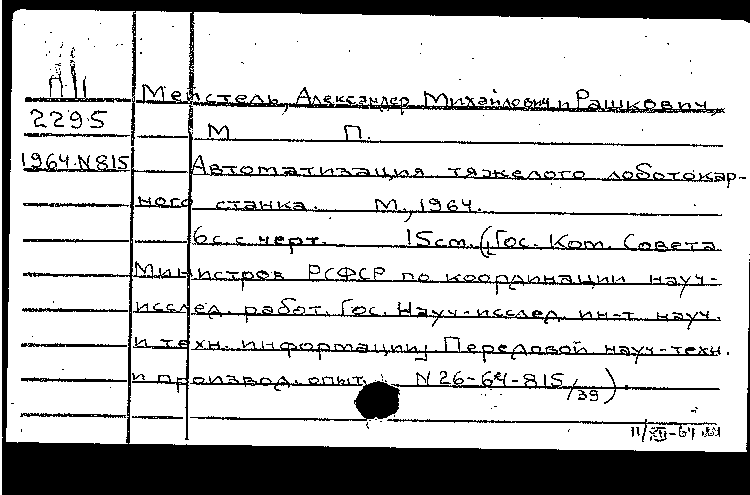 П
Мейстель, Александер Михайлович и Рашкович,
2295
М П.
1964.N815
Автоматизация тяжелого лоботокар-
ного станка. М, 1964.
6с. с черт. 15см. (Гос. Ком. Совета
Министров РСФСР по координации науч-
исслед. работ. Гос. Науч-исслед. ин-т науч.
и техн. информации, Передовой науч-техн.
и производ. опыт. N26-64-815/39).
11/XII-64